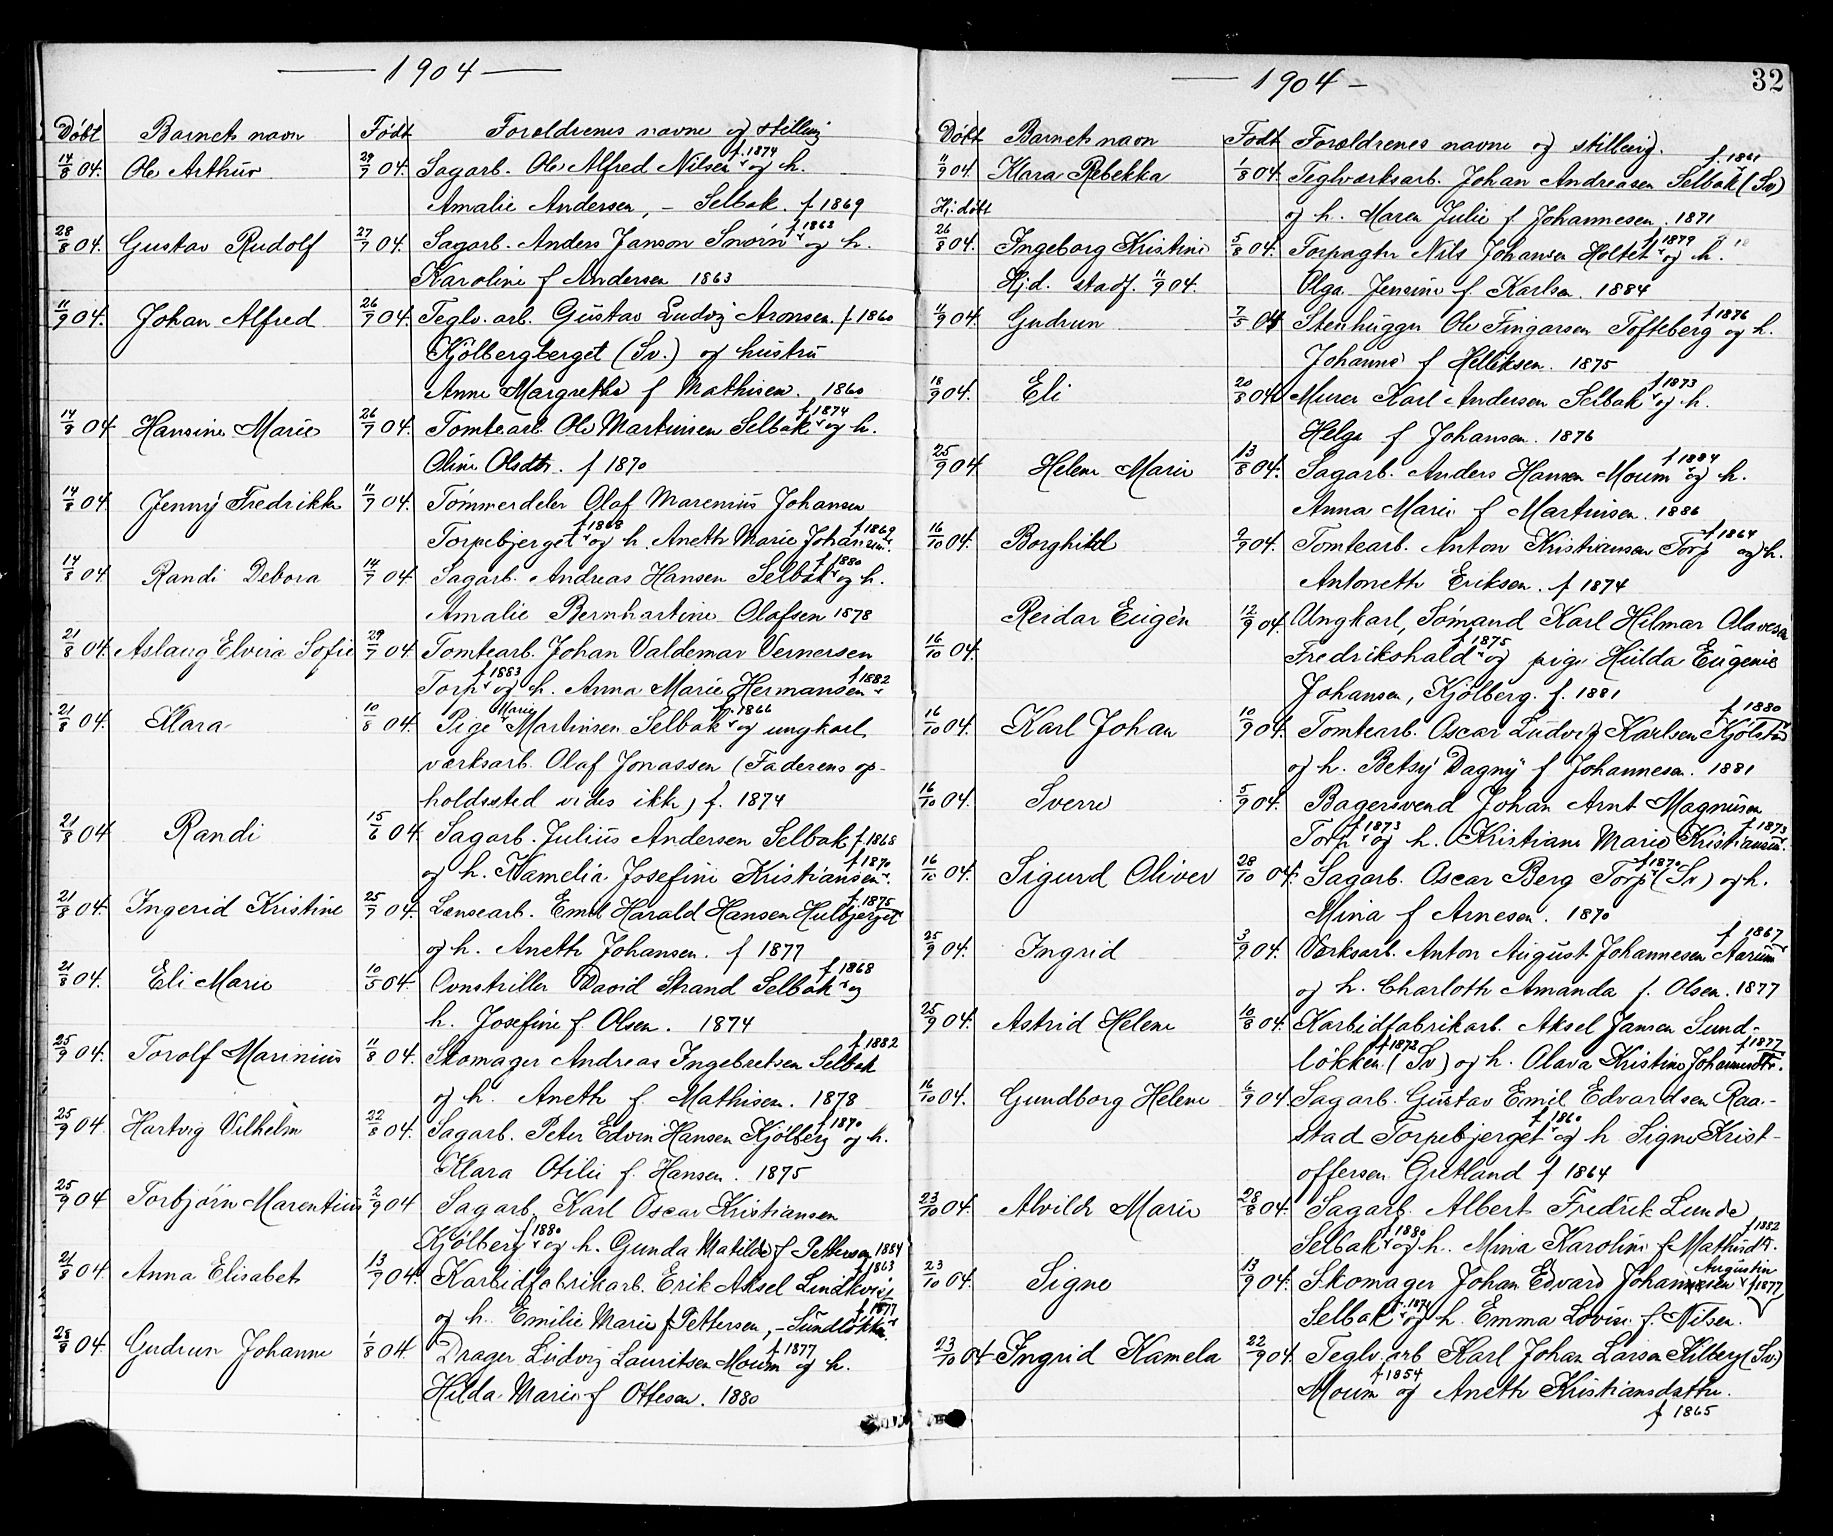 1904
Döbt Barnets navn Födt Foraldrenes navne og stilling
14/8 04. Ole Arthur 29/7 04. Sagarb. Ole Alfred Nilsen f. 1874 og h.
Amalie Andersen, - Selbak. f 1869
28/8 04. Gustav Rudolf 27/7 04. Sagarb. Anders Janson Snörn f 1862 og h.
Karoline f Andersen 1863
11/9 04. Johan Alfred 26/7 04. Teglv. arb. Gustav Ludvig Aronsen. f 1860
Kjölbergberget (Sv.) og hustru
Anne Margrethe f Mathisen. 1860
14/8 04 Hansine Marie 26/7 04. Tomtearb. Ole Martinsen Selbak f 1874 og h.
Oline Olsdtr. f 1870
14/8 04. Jenny Fredrikke 11/7 04. Tömmerdeler Olaf Marenius Johansen
Torpebjerget f 1868 og h. Aneth Marie Johansen f 1869.
14/8 04 Randi Debora 14/7 04. Sagarb. Andreas Hansen Selbak f 1880 og h.
Amalie Bernhartine Olafsen 1878
21/8 04. Aslaug Elvira Sofie 29/7 04. Tomtearb. Johan Valdemar Vernersen
Torp f 1883 og h. Anna Marie Hermansen f 1882
21/8 04. Klara 10/8 04. Pige Marie Martinsen Selbak f. 1866 og ungkarl,
værksarb. Olaf Jonassen (Faderens op-
holdssted vides ikke) f. 1874
21/8 04 Randi 15/6 04. Sagarb. Julius Andersen Selbak f 1868
og h. Kamelia Josefine Kristiansen f 1870.
21/8 04. Ingerid Kristine 25/7 04. Lænsearb. Emil Harald Hansen Hulbjerget f 1875
og h. Aneth Johansen. f 1877
21/8 04. Eli Marie 10/5 04. Ovnstiller David Strand Selbak f 1868 og
h. Josefine f. Olsen. 1874
25/9 04. Torolf Marinius 11/8 04. Skomager Andreas Ingebretsen Selbak f 1882
og h. Aneth f. Mathisen. 1878
25/9 04. Hartvig Vilhelm 22/8 04. Sagarb. Peter Edvin Hansen Kjölberg f 1870 og h.
Klara Otilie f. Hansen. 1875
25/9 04 Torbjörn Marentius 2/9 04 Sagarb. Karl Oscar Kristiansen
Kjölberg f 1880 og h. Gunda Matilde f Pettersen 1884
21/8 04. Anna Elisabet 13/7 04. Karbidfabrikarb. Erik Aksel Lindkvist f 1863
og h. Emilie Marie f. Pettersen, - Sundlökken f 1877
28/8 04. Gudrun Johanne 1/8 04. Drager Ludvig Lauritsen Moum f 1877 og h.
Hilda Marie f Ottesen. 1880
1904 -
32
Döbt Barnets navn Födt Foraldrenes navne og stilling.
11/9 04. Klara Rebekka 1/8 04. Teglværksarb. Johan Andreasen Selbak (Sv) f. 1861
Hj. döbt og h. Maren Julie f Johannesen. 1871
26/8 04. Ingeborg Kristine 5/8 04. Forpagter Nils Johansen Holtet f 1879 og h.
Hjd. stadf. 11/9 04. Olga Jensine f. Karlsen. 1884
11/9 04. Gudrun 7/5 04 Stenhugger Ole Fingarsen Tofteberg f 1876 og h.
Johanne f Helliksen. 1875
18/9 04. Eli 20/8 04. Murer Karl Andersen Selbak f 1873 og h.
Helga f Johansen. 1876
25/9 04. Helene Marie 13/8 04. Sagarb. Anders Hansen Moum f 1884 og h.
Anna Marie f Martinsen. 1886
16/10 04. Borghild 2/9 04. Tomtearb. Anton Kristiansen Torp f 1864 og h.
Antoneth Eriksen. f 1874
Reidar Eugén 12/9 04. Ungkarl, Sömand Karl Hilmar Olavesen
16/10 04. Fredrikshald f 1875 og pige Hulda Eugenie
Johansen, Kjölberg. f. 1881
16/10 04. Karl Johan 10/9 04. Tomtearb. Oscar Ludvig Karlsen Kjölstad f 1880
og h. Betsy Dagny f Johannesen. 1881
16/10 04. Sverre 5/9 04. Bagersvend Johan Arnt Magnusen
Torp f 1873 og h. Kristiane Marie Kristiansen f 1873.
16/10 04. Sigurd Oliver 28/10 04. Sagarb. Oscar Berg Torp f 1870 (Sv) og h.
Mina f Arnesen. 1870
25/9 04. Ingrid 3/9 04. Værksarb. Anton August Johannesen Aarum f 1867
og h. Charloth Amanda f. Olsen. 1877
25/9 04. Astrid Helene 10/8 04. Karbidfabrikarb. Aksel Jansen Sund-
lökken f 1873 (Sv) og h. Olava Kristine Johannesdtr. f 1877
16/10 04. Gundborg Helene 6/9 04 Sagarb. Gustav Emil Edvardsen Raa-
stad Torpebjerget f 1860 og h Signe Krist-
offersen Gretland f 1864
23/10 04. Alvilde Marie 28/8 04. Sagarb. Albert Fredrik Lunde
Selbak f 1880 og h. Mina Karoline f Mathisdtr. f 1882
23/10 04. Signe 13/9 04. Skomager Johan Edvard Johannesen Augustin f 1877
Selbak f. 1874 og h. Emma Lovise f. Nilsen.
23/10 04 Ingrid Kamela 22/9 04. Teglv. arb Karl Johan Larsen Kilberg (Sv.)
Moum f 1854 og Aneth Kristiansdatter.
f 1865